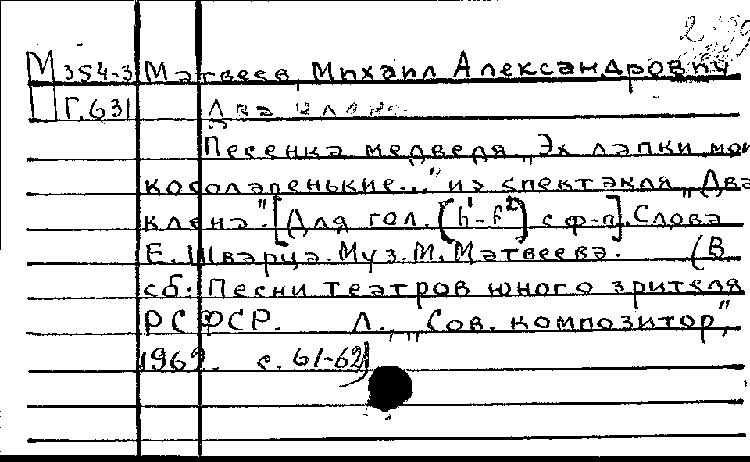 М 354-3 Матвеев, Михаил Александрович
Г.631 Два клена.
Песенка медведя „Эх лапки мои
косолапенькие..." из спектакля „Два
клена". [Для гол. (h¹-f²) с ф-п]. Слова
Е. Шварца. Муз. М. Матвеева. (В
сб: Песни театров юного зрителя
РСФСР. Л., „Сов. композитор",
1962. с. 61-62)